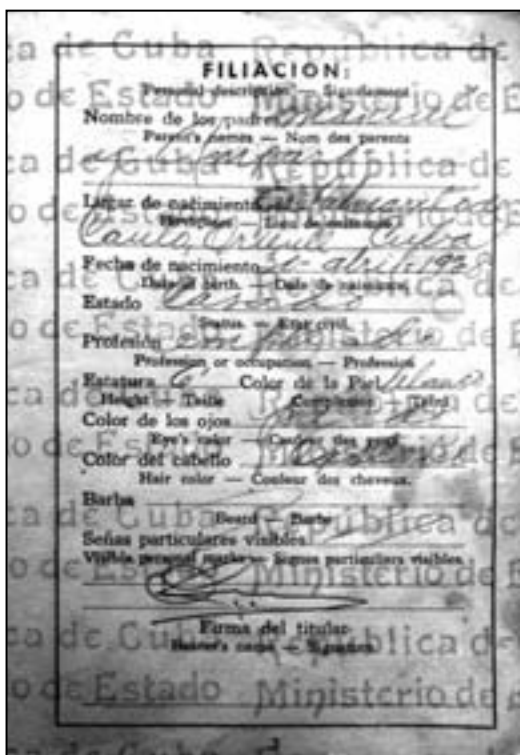 FILIACIÓN:
Personal description — Signalement
Nombre de los padres Manuel
Parent's names — Nom des parents
y Amparo
Lugar de nacimiento Palmarito de
Birthplace — Lieu de naissance
Cauto, Oriente Cuba
Fecha de nacimiento abril 1928
Date of birth. — Date de naissance.
Estado Casado
Status. — Etat civil.
Profesión empleado
Profession or occupation — Profession
Estatura 6 Color de la Piel blanco
Height — Taille Complexion — Teint
Color de los ojos
Eye's color — Couleur des yeux
Color del cabello
Hair color — Couleur des cheveux.
Barba
Beard — Barbe
Señas particulares visibles
Visible personal marks — Signes particuliers visibles.
Firma del titular
Bearer's name — Signature
República de Cuba
Ministerio de Estado